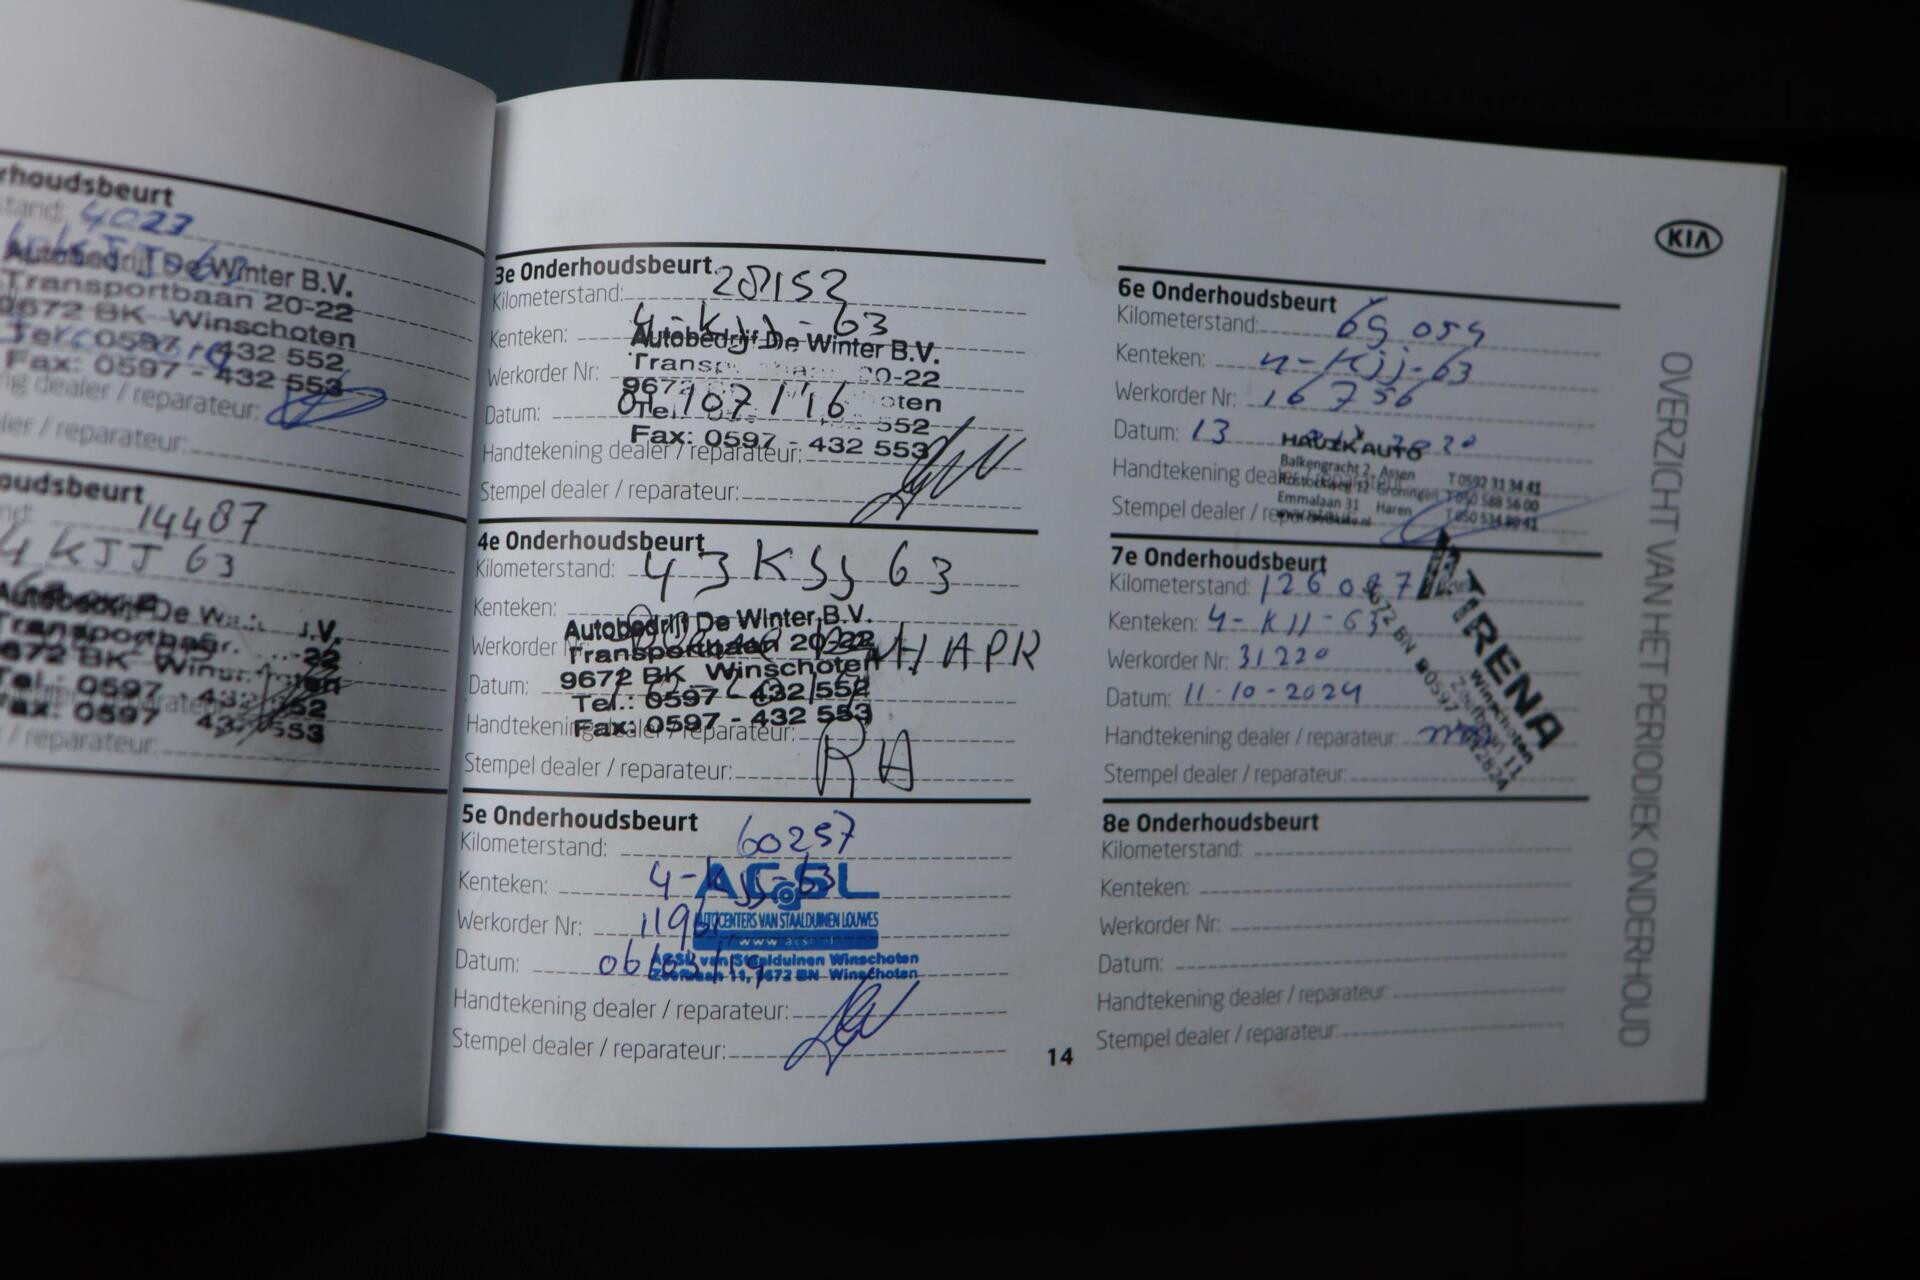 rhoudsbeurt
stand: 4023
Autobedrijf De Winter B.V.
Transportbaan 20-22
9672 BK Winschoten
Tel.: 0597 - 432 552
Fax: 0597 - 432 553
ng dealer / reparateur:
ler / reparateur:
oudsbeurt
nd: 14487
4 KJJ 63
Autobedrijf De Winter B.V.
Transportbaan 20-22
9672 BK Winschoten
Tel.: 0597 - 432 552
Fax: 0597 - 432 553
/ reparateur:
3e Onderhoudsbeurt
Kilometerstand: 28152
Kenteken: 4-KJJ-63
Autobedrijf De Winter B.V.
Werkorder Nr: Transportbaan 20-22
9672 Winschoten
Datum: /07/16
Tel. 552
Fax: 0597 - 432 553
Handtekening dealer / reparateur:
Stempel dealer / reparateur:
4e Onderhoudsbeurt
Kilometerstand: 43 KJJ 63
Kenteken:
Autobedrijf De Winter B.V.
Werkorder Nr: Transportbaan 20-22 APK
9672 BK Winschoten
Datum:
Tel.: 0597 - 432 552
Fax: 0597 - 432 553
Handtekening dealer / reparateur:
Stempel dealer / reparateur:
5e Onderhoudsbeurt
Kilometerstand: 60257
Kenteken: 4-KJJ-63
ACSL
Werkorder Nr: AUTOCENTERS VAN STAALDUINEN LOUWES
Datum: 06/03/19
ACSL van Staalduinen Winschoten
Zeefbaan 11, 9672 BN Winschoten
Handtekening dealer / reparateur:
Stempel dealer / reparateur:
14
KIA
6e Onderhoudsbeurt
Kilometerstand: 69 054
Kenteken: 4-KJJ-63
Werkorder Nr: 16756
Datum: 13 2020
HAUZK AUTO
Balkengracht 2, Assen T 0592 31 34 41
Rostockweg 12 Groningen T 050 588 56 00
Emmalaan 31 Haren
Handtekening dealer / reparateur:
Stempel dealer / reparateur:
7e Onderhoudsbeurt
Kilometerstand: 126087
Kenteken: 4-KJJ-63
Werkorder Nr: 31220
Datum: 11-10-2024
Handtekening dealer / reparateur:
Stempel dealer / reparateur:
TIRENA
Zeefbaan 11
9672 BN Winschoten
8e Onderhoudsbeurt
Kilometerstand:
Kenteken:
Werkorder Nr:
Datum:
Handtekening dealer / reparateur:
Stempel dealer / reparateur:
OVERZICHT VAN HET PERIODIEK ONDERHOUD